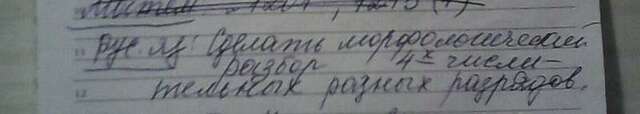 Рус. яз: Сделать морфологический
разбор 4х числи-
тельных разных разрядов.